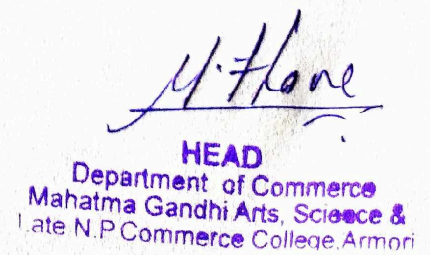 HEAD
Department of Commerce
Mahatma Gandhi Arts, Scieece &
Late N.P Commerce College, Armori